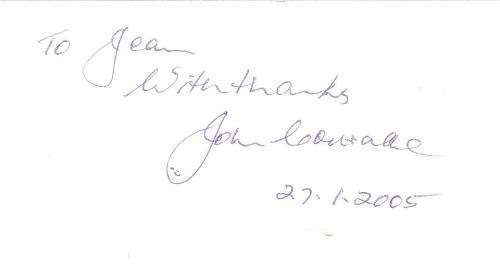 To Jean
With thanks
John
27.1.2005